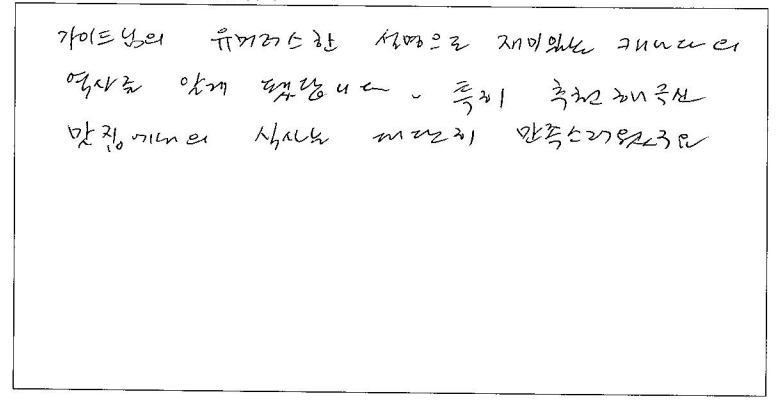 가이드님의 유머러스한 설명으로 재미있는 캐나다의
역사를 알게 됐답니다. 특히 추천해주신
맛집에서의 식사는 대단히 만족스러웠고요